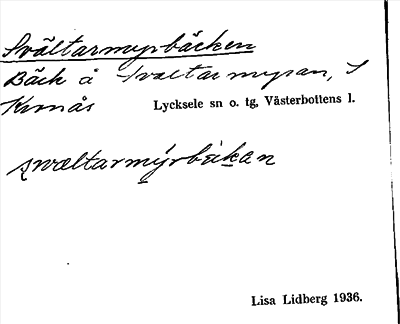 Svältarmyrbäcken
Bäck å Svältarmyran, S
Kvrnås Lycksele sn o. tg. Västerbottens l.
swæltarmýrbèkan
Lisa Lidberg 1936.